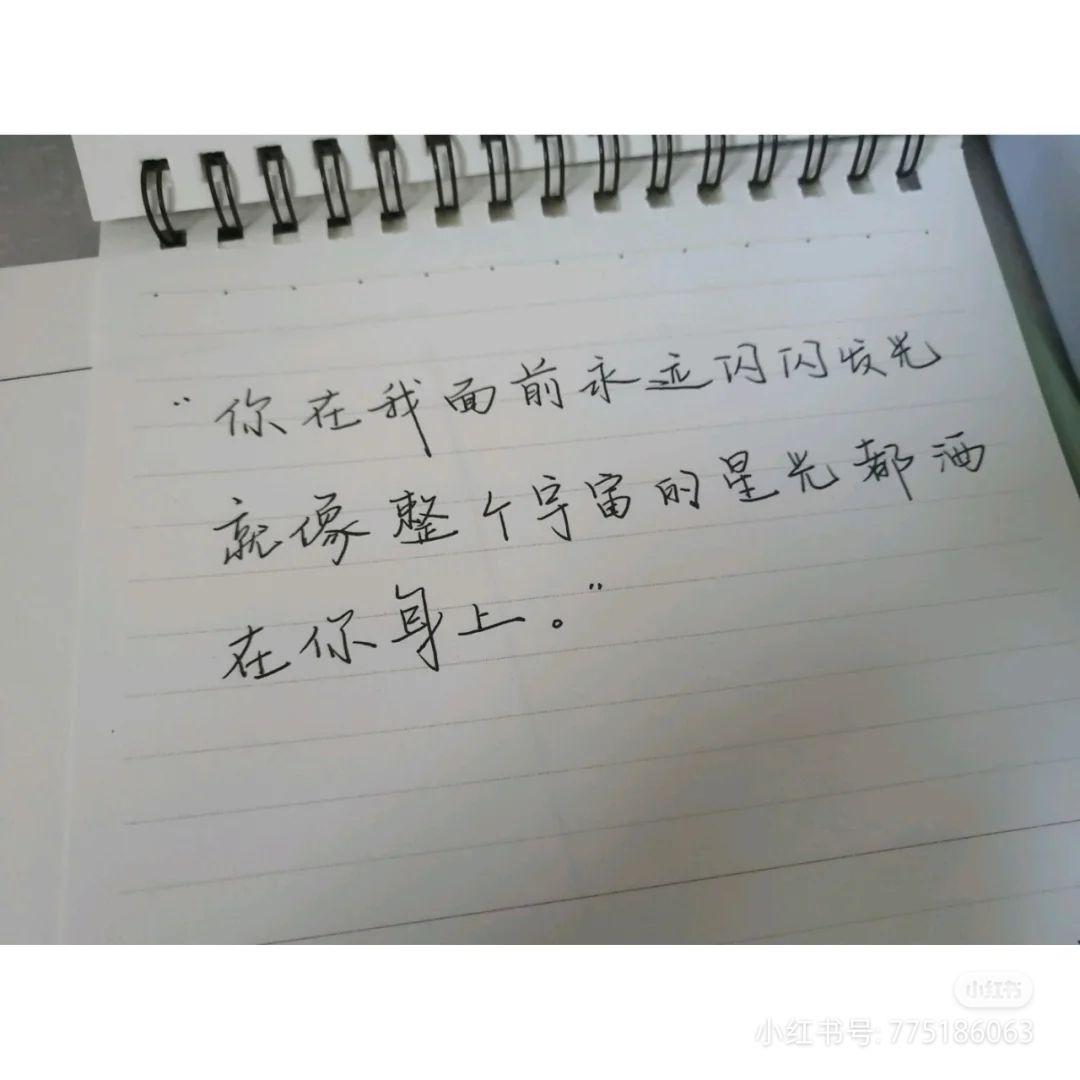 “你在我面前永远闪闪发光
就像整个宇宙的星光都洒
在你身上。”
小红书
小红书号: 775186063